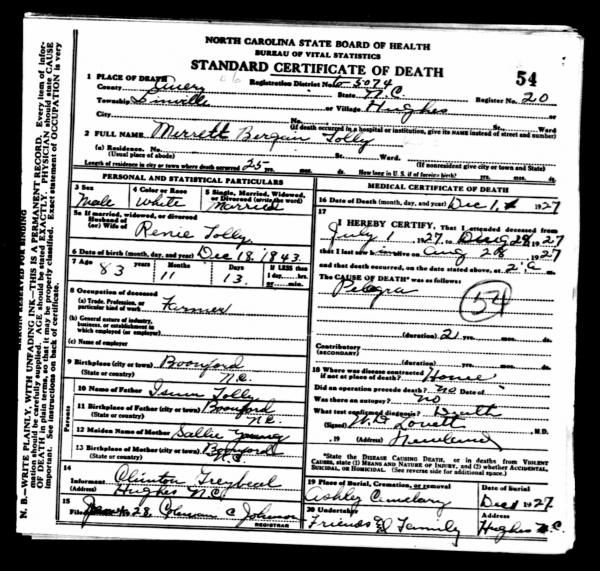 NORTH CAROLINA STATE BOARD OF HEALTH
BUREAU OF VITAL STATISTICS
STANDARD CERTIFICATE OF DEATH 54
1 PLACE OF DEATH Registration District No. 6-5074
County Avery State N.C. Register No. 20
Township Linville or Village Hughes
City No. St. Ward
(If death occurred in a hospital or institution, give its NAME instead of street and number)
2 FULL NAME Merrett Bergain Tolly
(a) Residence. No. St. Ward.
(Usual place of abode) (If nonresident give city or town and State)
Length of residence in city or town where death occurred 25 yrs. mos. ds. How long in U. S. if of foreign birth? yrs. mos. ds.
PERSONAL AND STATISTICAL PARTICULARS
3 Sex 4 Color or Race 5 Single, Married, Widowed, or Divorced (write the word)
Male White Married
5a If married, widowed, or divorced
Husband of
(or) Wife of Renie Tolly
6 Date of birth (month, day, and year) Dec 18. 1843.
7 Age Years Months Days If LESS than
83 11 13. 1 day, hrs.
or min.
8 Occupation of deceased
(a) Trade, Profession, or
particular kind of work Farmer
(b) General nature of industry,
business, or establishment in
which employed (or employer)
(c) Name of employer
9 Birthplace (city or town) Boonford
(State or country) N.C.
Parents
10 Name of Father Tolly
11 Birthplace of Father (city or town) Boonford
(State or country) N.C.
12 Maiden Name of Mother Sallie Young
13 Birthplace of Mother (city or town) Boonford
(State or country) N.C.
14
Informant Clinton Greybeal
(Address) Hughes N.C.
15
Filed Jan 4 28. C Johnson
REGISTRAR
MEDICAL CERTIFICATE OF DEATH
16 Date of Death (month, day, and year) Dec 1, 1927
17
I HEREBY CERTIFY, That I attended deceased from
July 1 1927, to Aug 28 1927
that I last saw him alive on Aug 28 1927
and that death occurred, on the date stated above, at 2 a m.
The CAUSE OF DEATH* was as follows:
Pelegra
54
(duration) 2 yrs. mos. ds.
Contributory
(SECONDARY)
(duration) yrs. mos. ds.
18 Where was disease contracted
if not at place of death? Home
Did an operation precede death? no Date of
Was there an autopsy? no
What test confirmed diagnosis?
(Signed) W. D. Lovett M.D.
, 19 (Address) Newland
*State the DISEASE CAUSING DEATH, or in deaths from VIOLENT CAUSES, state (1) MEANS AND NATURE OF INJURY, and (2) whether ACCIDENTAL, SUICIDAL, or HOMICIDAL. (See reverse side for additional space.)
19 Place of Burial, Cremation, or removal Date of Burial
Ashley Cemetary Dec 1927.
20 Undertaker Address
Friends & Family Hughes N.C.
MARGIN RESERVED FOR BINDING
N. B.—WRITE PLAINLY, WITH UNFADING INK—THIS IS A PERMANENT RECORD. Every item of information should be carefully supplied. AGE should be stated EXACTLY. PHYSICIANS should state CAUSE OF DEATH in plain terms, so that it may be properly classified. Exact statement of OCCUPATION is very important. See instructions on back of certificate.